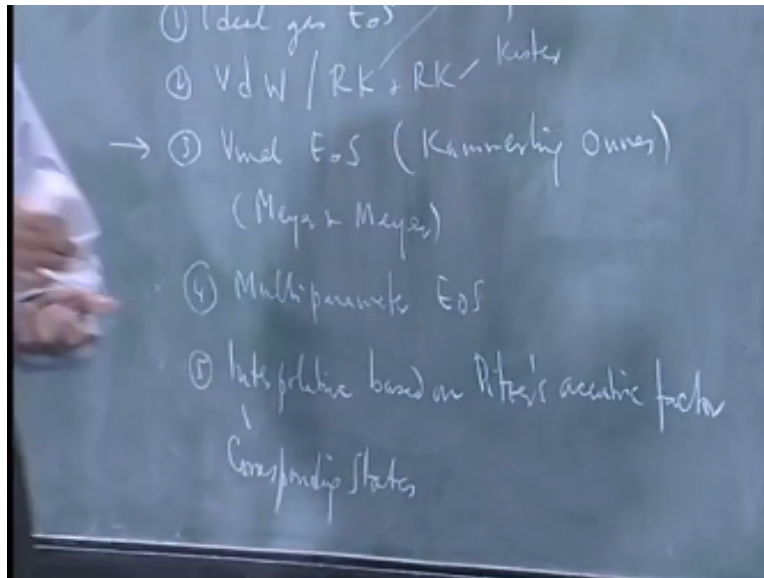 ① Ideal gas EoS
② VdW / RK & RK
③ Virial EoS (Kammerling Onnes)
(Mayer & Mayer)
④ Multiparameter EoS
⑤ Interpolative based on Pitzer's accentric factor
Corresponding States